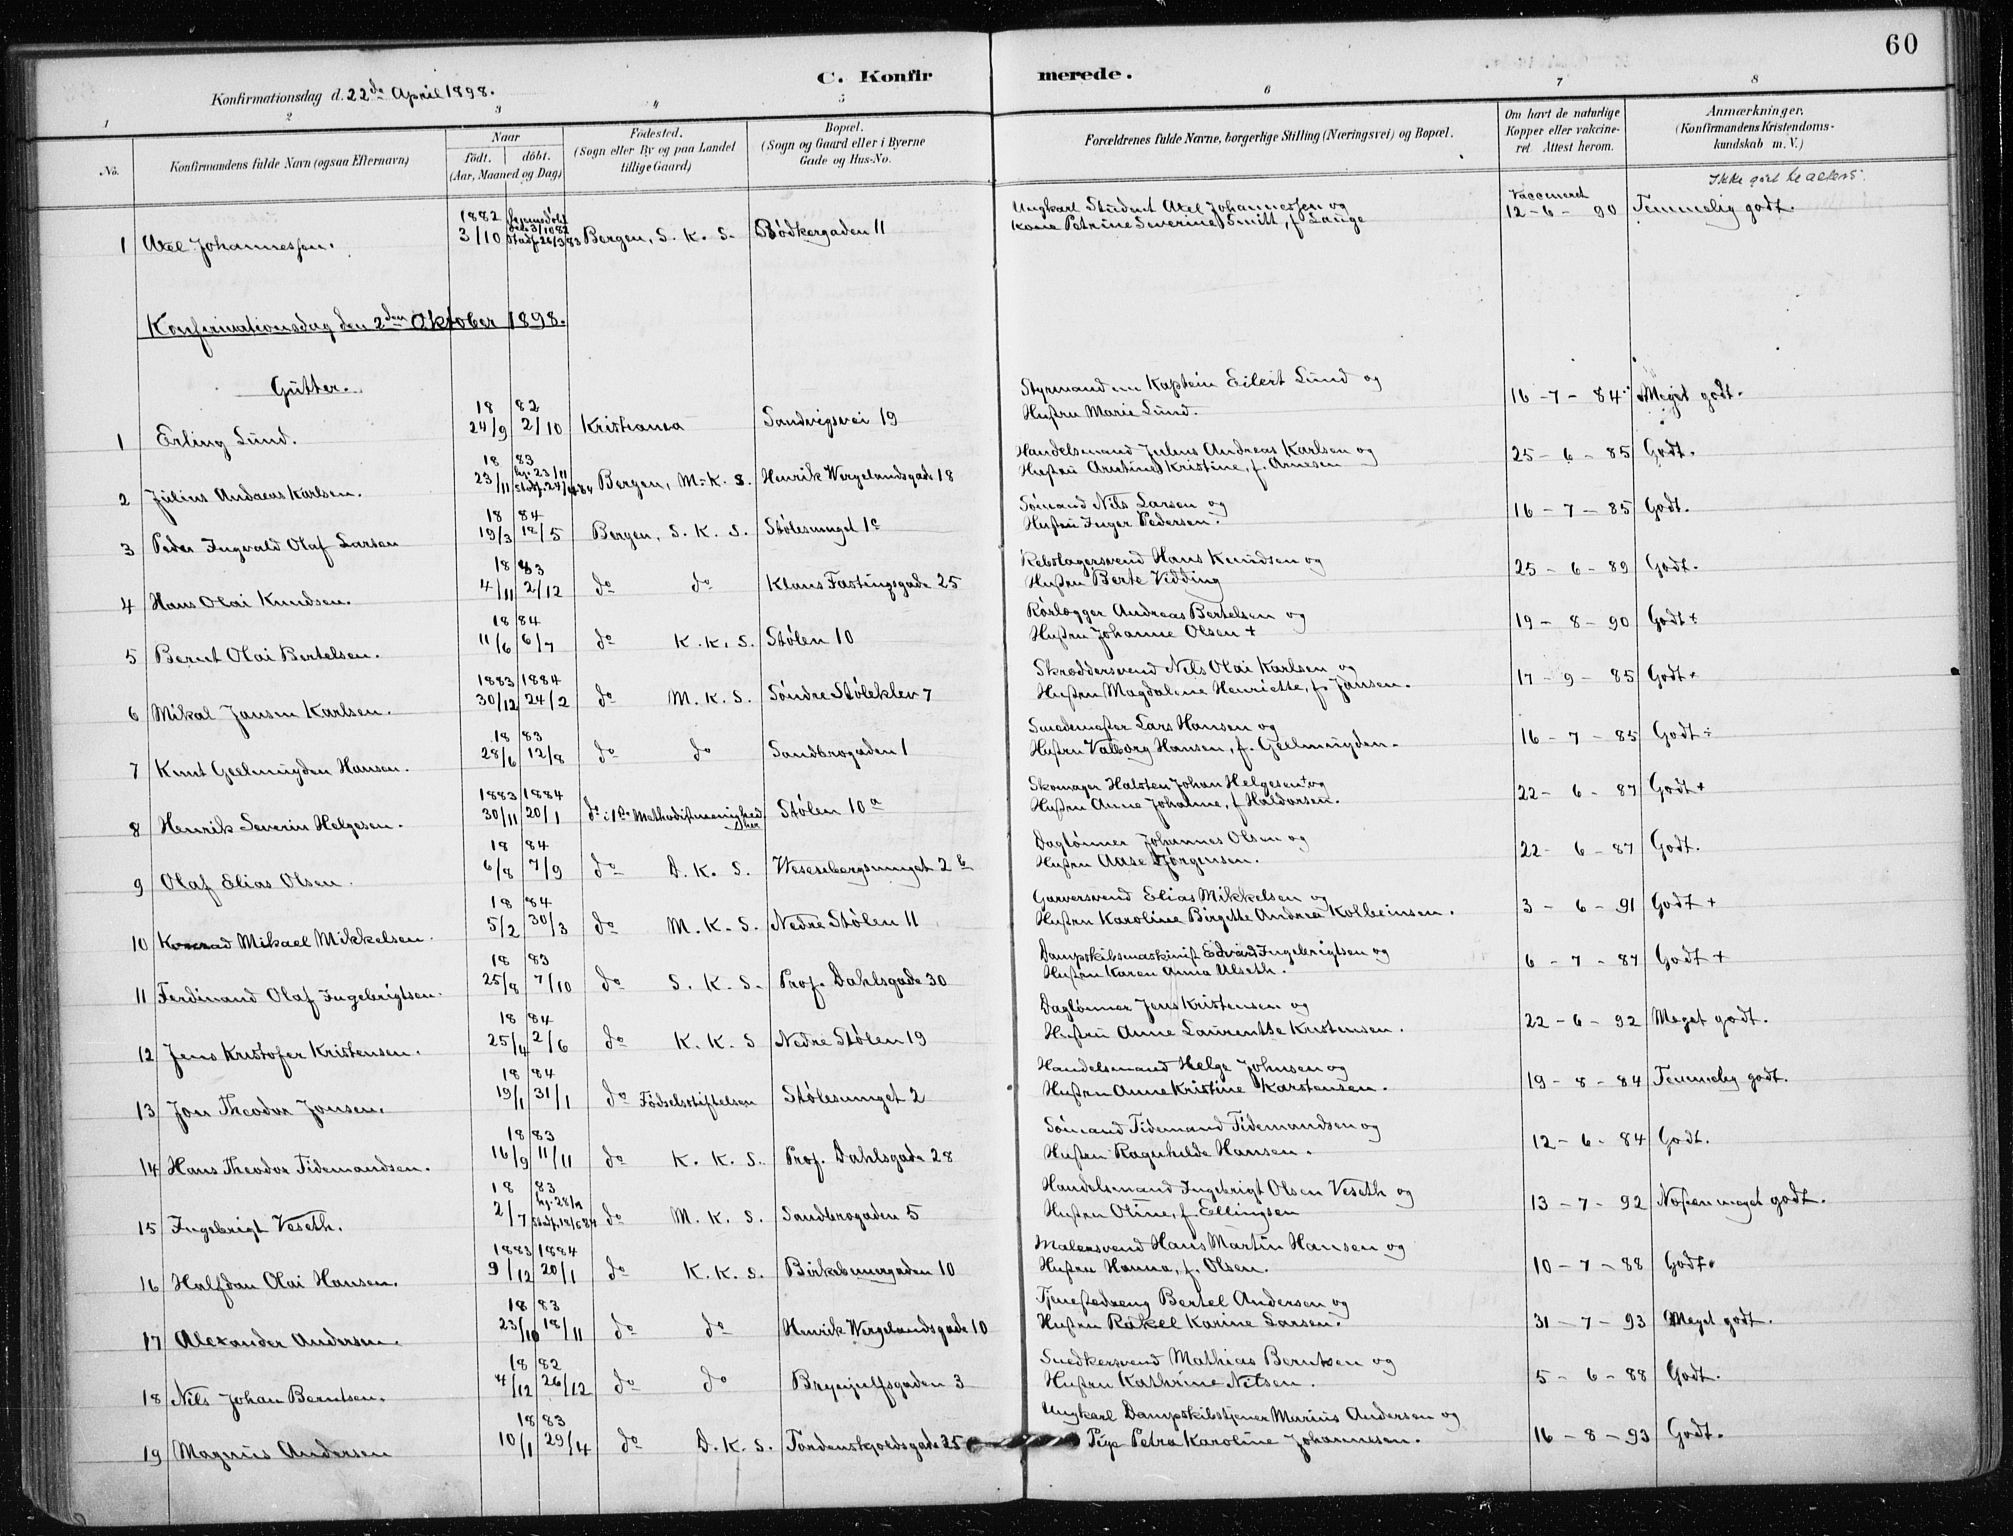 60
C. Konfirmerede.
Konfirmationsdag d. 22de April 1898.
1 2 3 4 5 6 7 8
No. Konfirmandens fulde Navn (ogsaa Efternavn) Naar født. døbt. (Aar, Maaned og Dag) Fødested. (Sogn eller By og paa Landet tillige Gaard) Bopæl. (Sogn og Gaard eller i Byerne Gade og Hus-No. Forældrenes fulde Navne, borgerlige Stilling (Næringsvei) og Bopæl. Om havt de naturlige Kopper eller vakcineret Attest herom. Anmærkninger. (Konfirmandens Kristendomskundskab m. V.)
Ikke gaaet til alters.
1 Axel Johannessen. 1882 3/10 hjemmedøbt 3/10 82 Stadf. 26/3 83 Bergen, S. K. S. Bødkergaden 11 Ungkarl Student Axel Johannessen og Vaccineret 12-6-90 Temmelig godt.
Kone Petrine Severine Smitt, f. Lange
Konfirmationsdag den 2den Oktober 1898.
Gutter.
1 Erling Lund. 1882 24/9 2/10 Kristiania Sandvigsvei 19 Styrmand nu Kaptein Eilert Lund og 16-7-84 Meget godt.
Hustru Marie Lund.
2 Julius Andreas Karlsen. 1883 23/11 hj. 23/11 Stadf. 24/4 84 Bergen, M. K. S. Henrik Wergelandsgade 18 Handelsmand Julius Andreas Karlsen og 25-6-85 Godt.
Hustru Arntine Kristine, f. Arnesen
3 Peder Ingvald Olaf Larsen 1884 19/3 12/5 Bergen, S. K. S. Stølesmuget 1c Sømand Nils Larsen og 16-7-85 Godt.
Hustru Inger Pedersen.
4 Hans Olai Knudsen. 1883 4/11 2/12 do do Klaus Fastingsgade 25 Rebslagersvend Hans Knudsen og 25-6-89 Godt.
Hustru Berte Vidding
5 Bernt Olai Bertelsen. 1884 11/6 6/7 do K. K. S. Stølen 10 Rørlægger Andreas Bertelsen og 19-8-90 Godt÷
Hustru Johanne Olsen +
6 Mikal Jansen Karlsen. 1883 1884 30/12 24/2 do M. K. S. Søndre Støleklev 7 Skræddersvend Nils Olai Karlsen og 17-9-85 Godt+
Hustru Magdalene Henriette, f. Jansen.
7 Knut Geelmuyden Hansen. 1883 28/6 12/8 do do Sandbrogaden 1 Smedemester Lars Hansen og 16-7-85 Godt÷
Hustru Valborg Hansen, f. Geelmuyden.
8 Henrik Severin Helgesen. 1883 1884 30/11 20/1 do i 1ste Methodistmenighed her Stølen 10a Skomager Halsten Johan Helgesen+ og 22-6-87 Godt+
Hustru Anne Johanne, f. Haldorsen.
9 Olaf Elias Olsen. 1884 6/8 7/9 do D. K. S. Wesenbergsmuget 2b Daglønner Johannes Olsen og 22-6-87 Godt.
Hustru Aase Jørgensen.
10 Konrad Mikael Mikkelsen. 1884 5/2 30/3 do M. K. S. Nedre Stølen 11 Garversvend Elias Mikkelsen og 3-6-91 Godt+
Hustru Karoline Birgitte Andrea Kolbeinsen.
11 Ferdinand Olaf Ingebrigtsen. 1883 25/8 7/10 do S. K. S. Prof. Dahlsgade 30 Dampskibsmaskinist Edvard Ingebrigtsen og 6-7-87 Godt+
Hustru Karen Anna Ulseth.
12 Jens Kristofer Kristensen. 1884 25/4 2/6 do K. K. S Nedre Stølen 19 Daglønner Jens Kristensen og 22-6-92 Meget godt.
Hustru Anne Laurentse Kristensen.
13 Jon Theodor Jonsen. 1884 19/1 31/1 do Fødselsstiftelsen Stølesmuget 2 Handelsmand Helge Johnsen og 19-8-84 Temmelig godt.
Hustru Anne Kristine Karstensen.
14 Hans Theodor Tidemandsen. 1883 16/9 11/11 do K. K. S. Prof. Dahlsgade 28 Sømand Tidemand Tidemandsen og 12-6-84 Godt.
Hustru Ragnhilde Hansen.
15 Ingebrigt Veseth. 1883 2/7 hj. Stadf. do M. K. S. Sandbrogaden 5 Handelsmand Ingebrigt Olsen Veseth og 13-7-92 Næsten meget godt.
Hustru Oline, f. Ellingsen
16 Halfdan Olai Hansen. 1883 1884 9/12 20/1 do K. K. S. Birkebeinergaden 10 Malersvend Hans Martin Hansen og 10-7-88 Godt.
Hustru Hanna, f. Olsen.
17 Alexander Andersen. 1883 23/10 18/11 do do Henrik Wergelandsgade 10 Tjenestedreng Bertel Andersen og 31-7-93 Meget godt.
Hustru Rakel Karine Larsen.
18 Nils Johan Berntsen. 1882 4/12 26/12 do do Brynjulfsgaden 3 Snedkersvend Mathias Berntsen og 5-6-88 Godt.
Hustru Kathrine Nilsen.
19 Magnus Andersen 1883 10/1 29/4 do D. K. S. Tordenskjoldsgade 25 Ungkarl Dampskibstjener Marius Andersen og 16-8-93 Godt.
Pige Petra Karoline Johannesen.